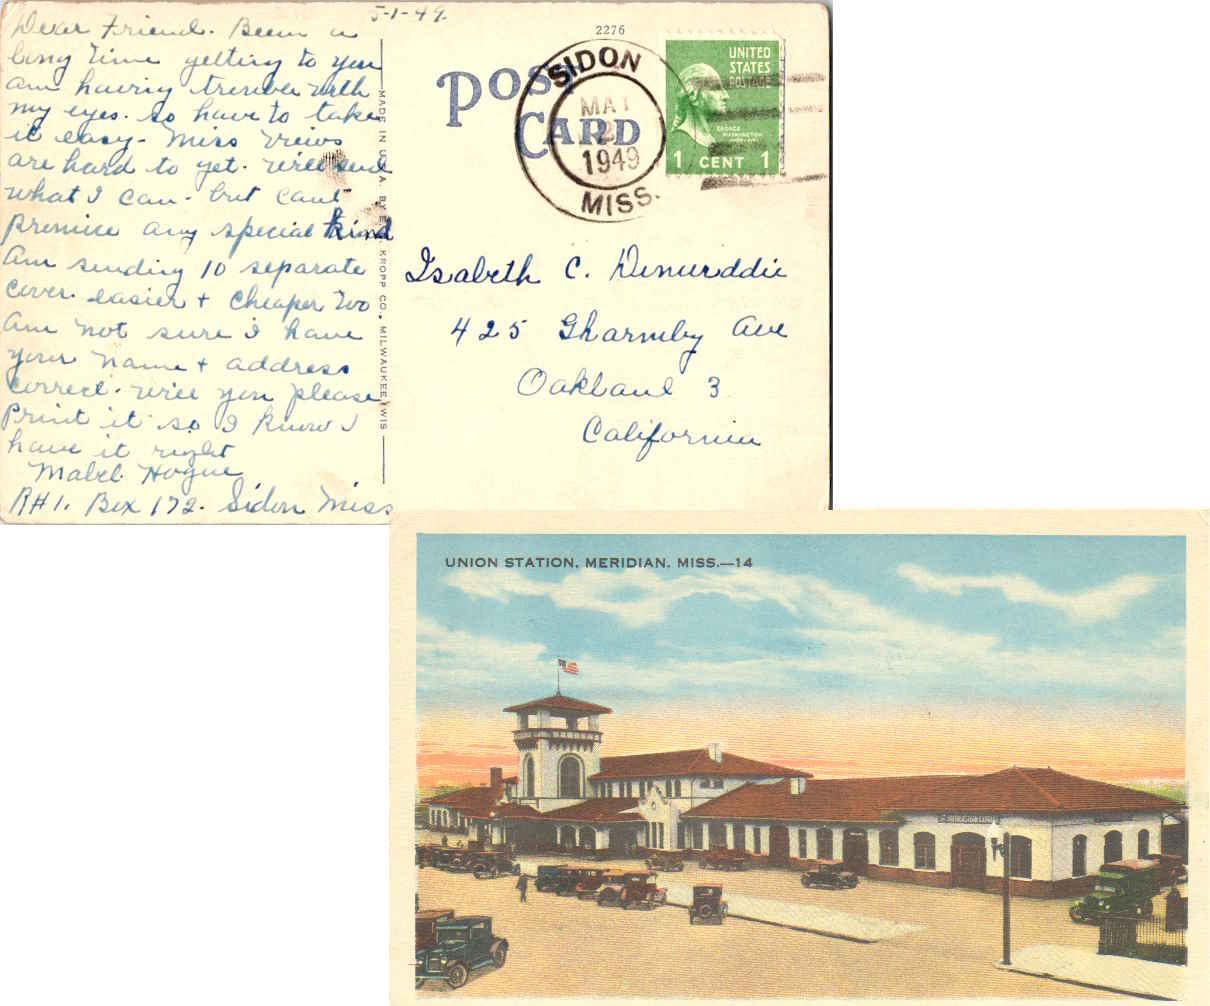 5-1-49.
Dear Friend. Been a
long time getting to you
am having trouble with
my eyes. so have to take
it easy - Miss Views
are hard to get. will send
what I can - but cant
promise any special kind
Am sending 10 separate
cover. easier + cheaper too
Am not sure I have
your name + address
correct. will you please
Print it so I know I
have it right
Mabel Hogue
R#1. Box 172. Sidon Miss
MADE IN U.S.A. BY E. C. KROPP CO., MILWAUKEE, WIS
2276
POST
CARD
SIDON
MAY
2
1949
MISS.
UNITED
STATES
POSTAGE
GEORGE
WASHINGTON
1 CENT 1
Isabeth C.
425 Gharmley Ave
Oakland 3
California
UNION STATION, MERIDIAN, MISS.—14